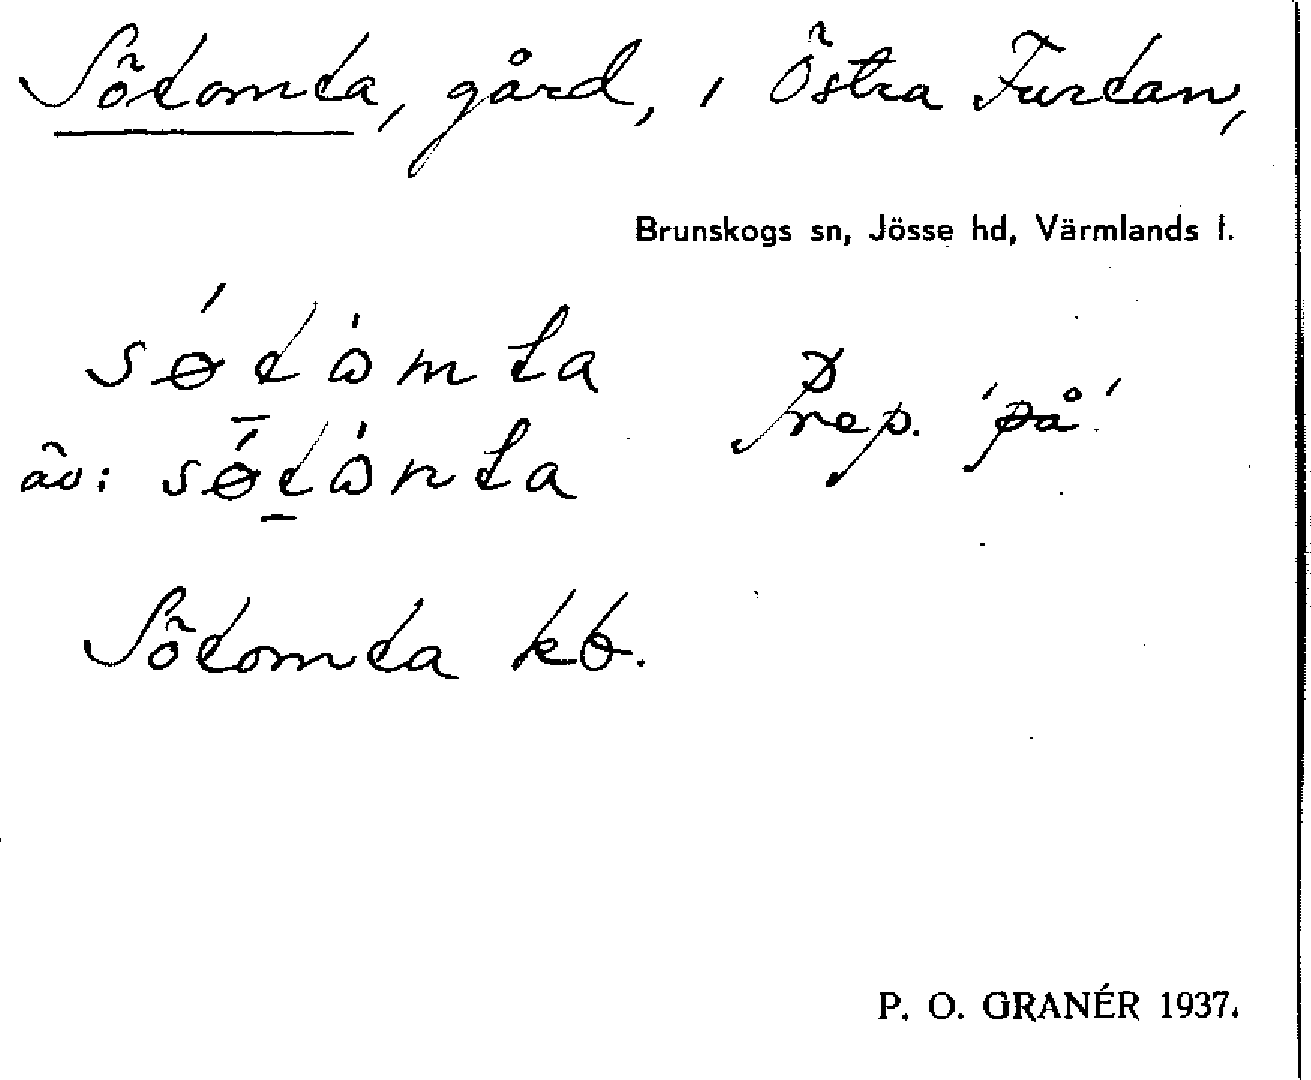 Sötomta, gård, i Östra Furtan,
Brunskogs sn, Jösse hd, Värmlands l.
søtòmta Prep. 'på'
äv: søtònta
Sötomta kb.
P. O. GRANÉR 1937.